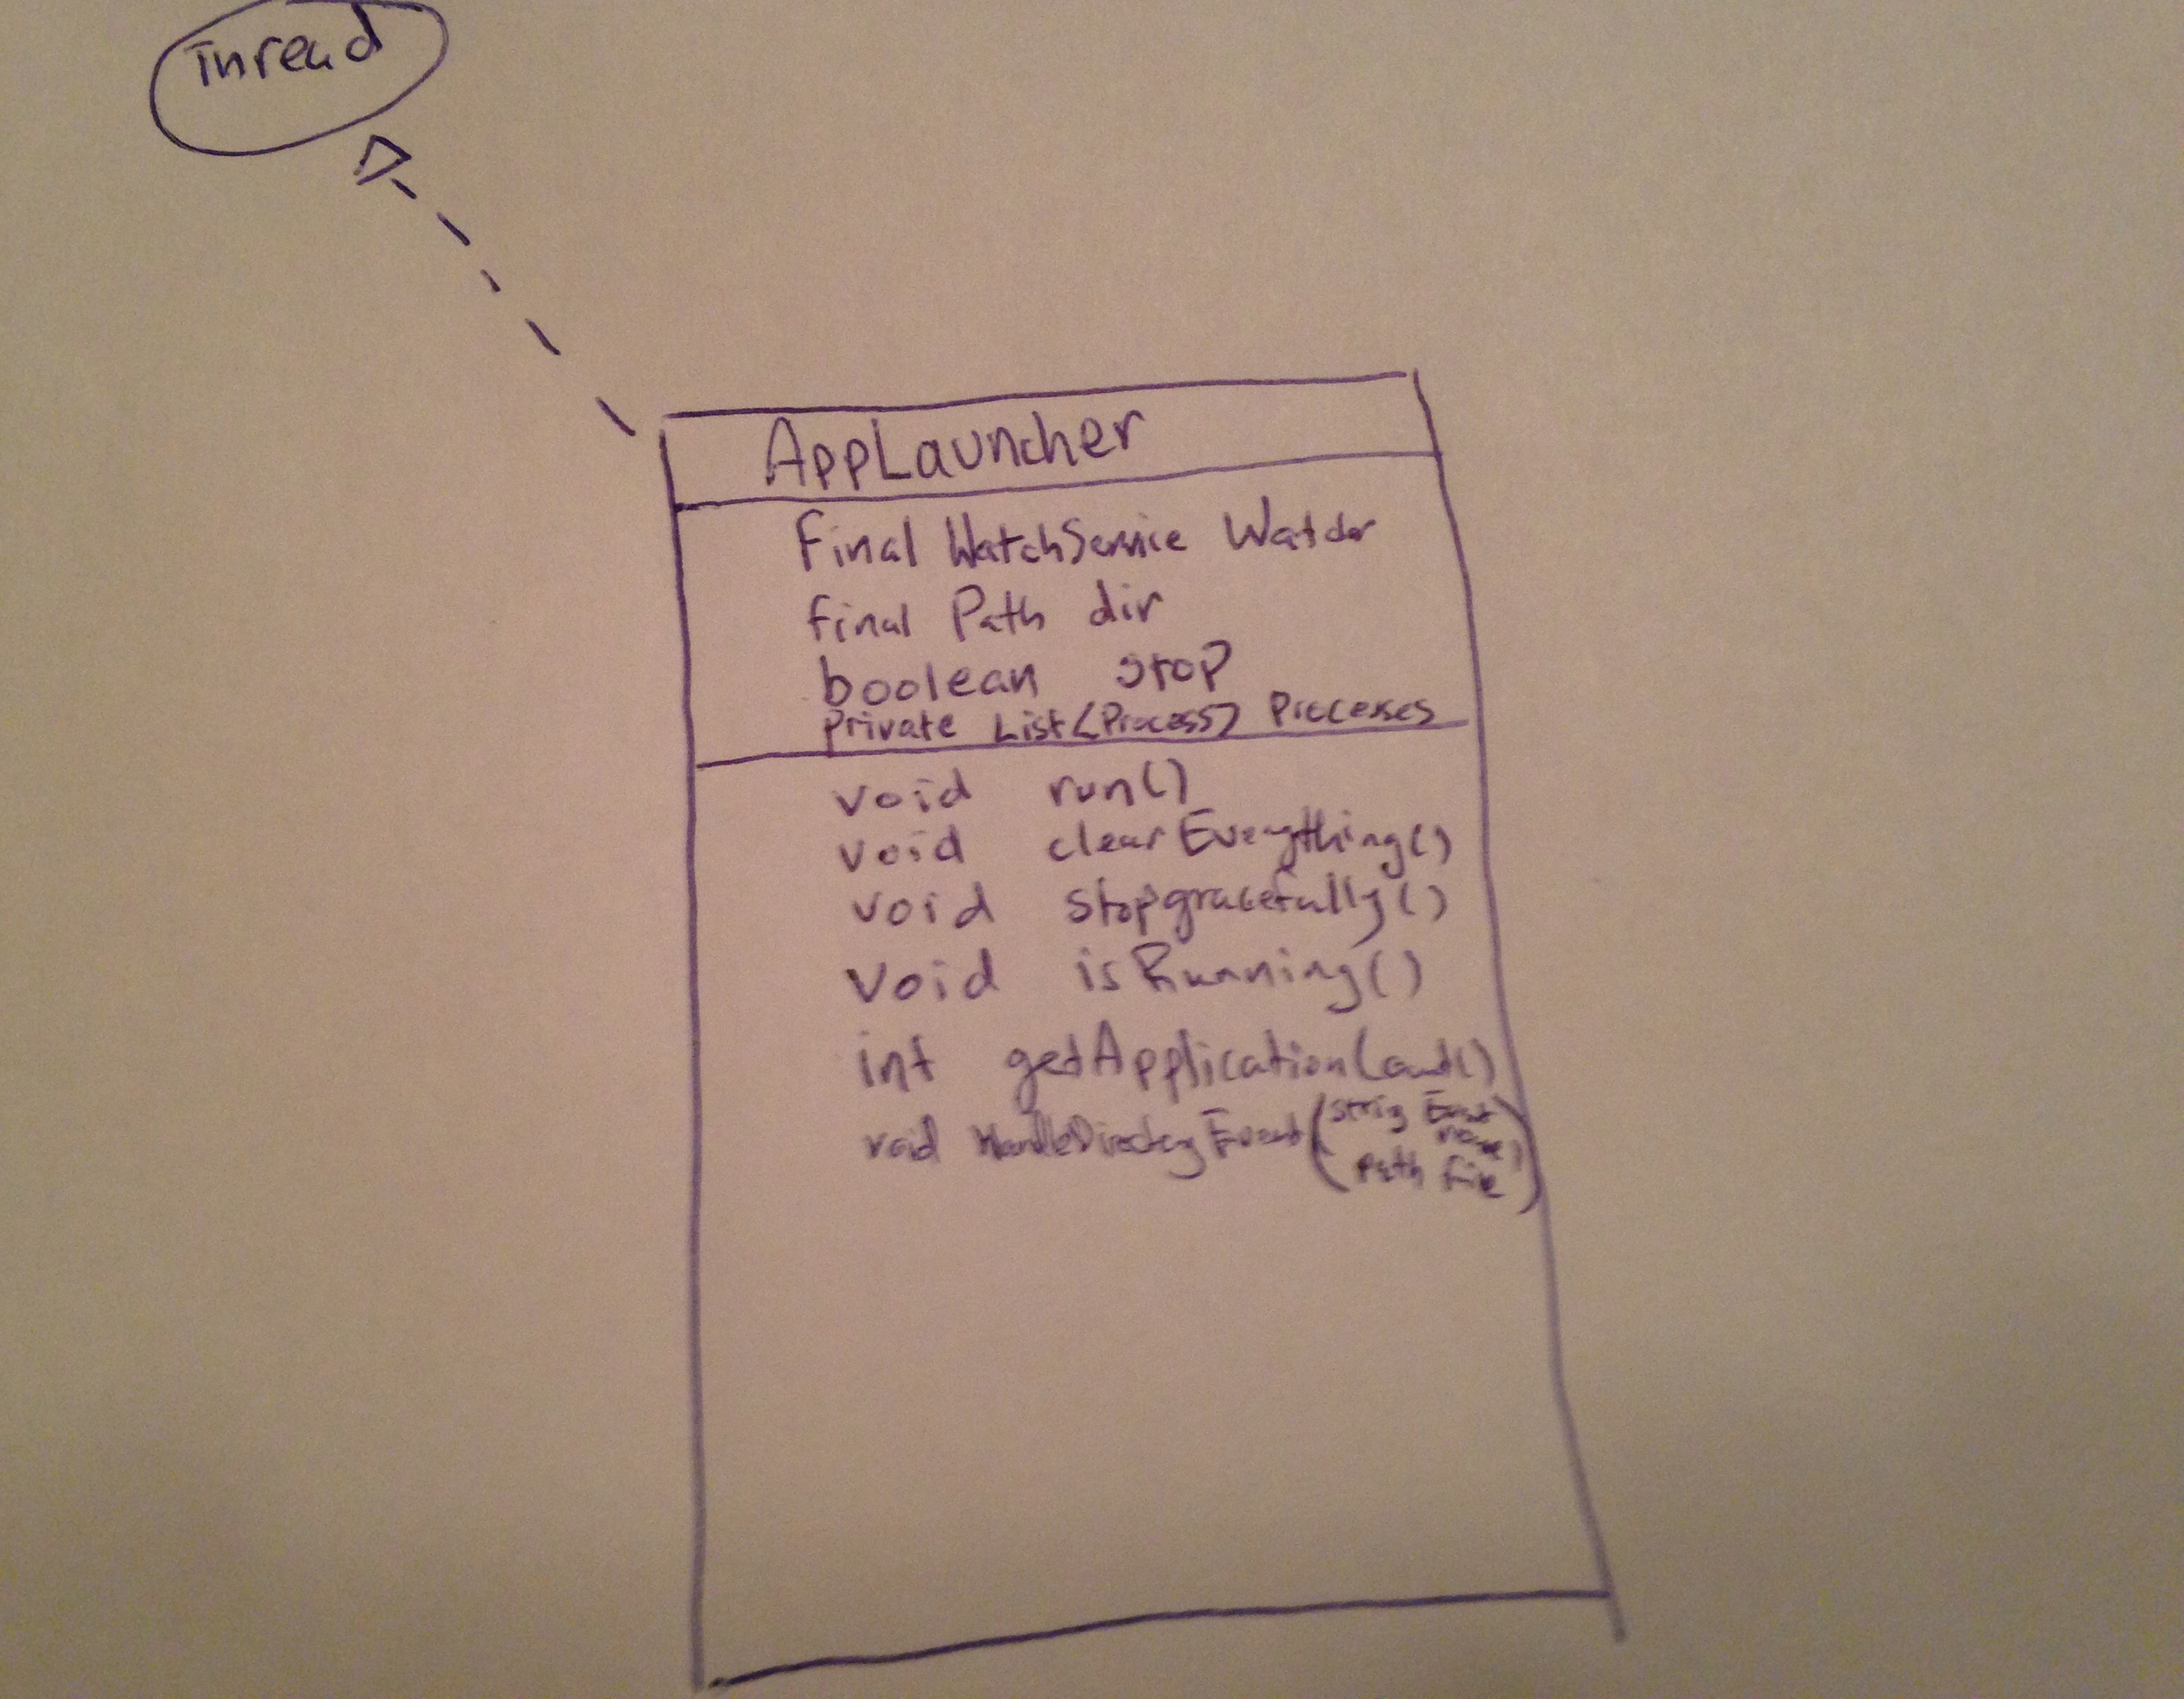 Thread
AppLauncher
Final WatchService Watcher
final Path dir
boolean stop
private List<Process> Processes
void run()
void clearEverything()
void stopgracefully()
void isRunning()
int getApplicationCount()
void HandleDirectoryEvent(String Event
name,
Path file)